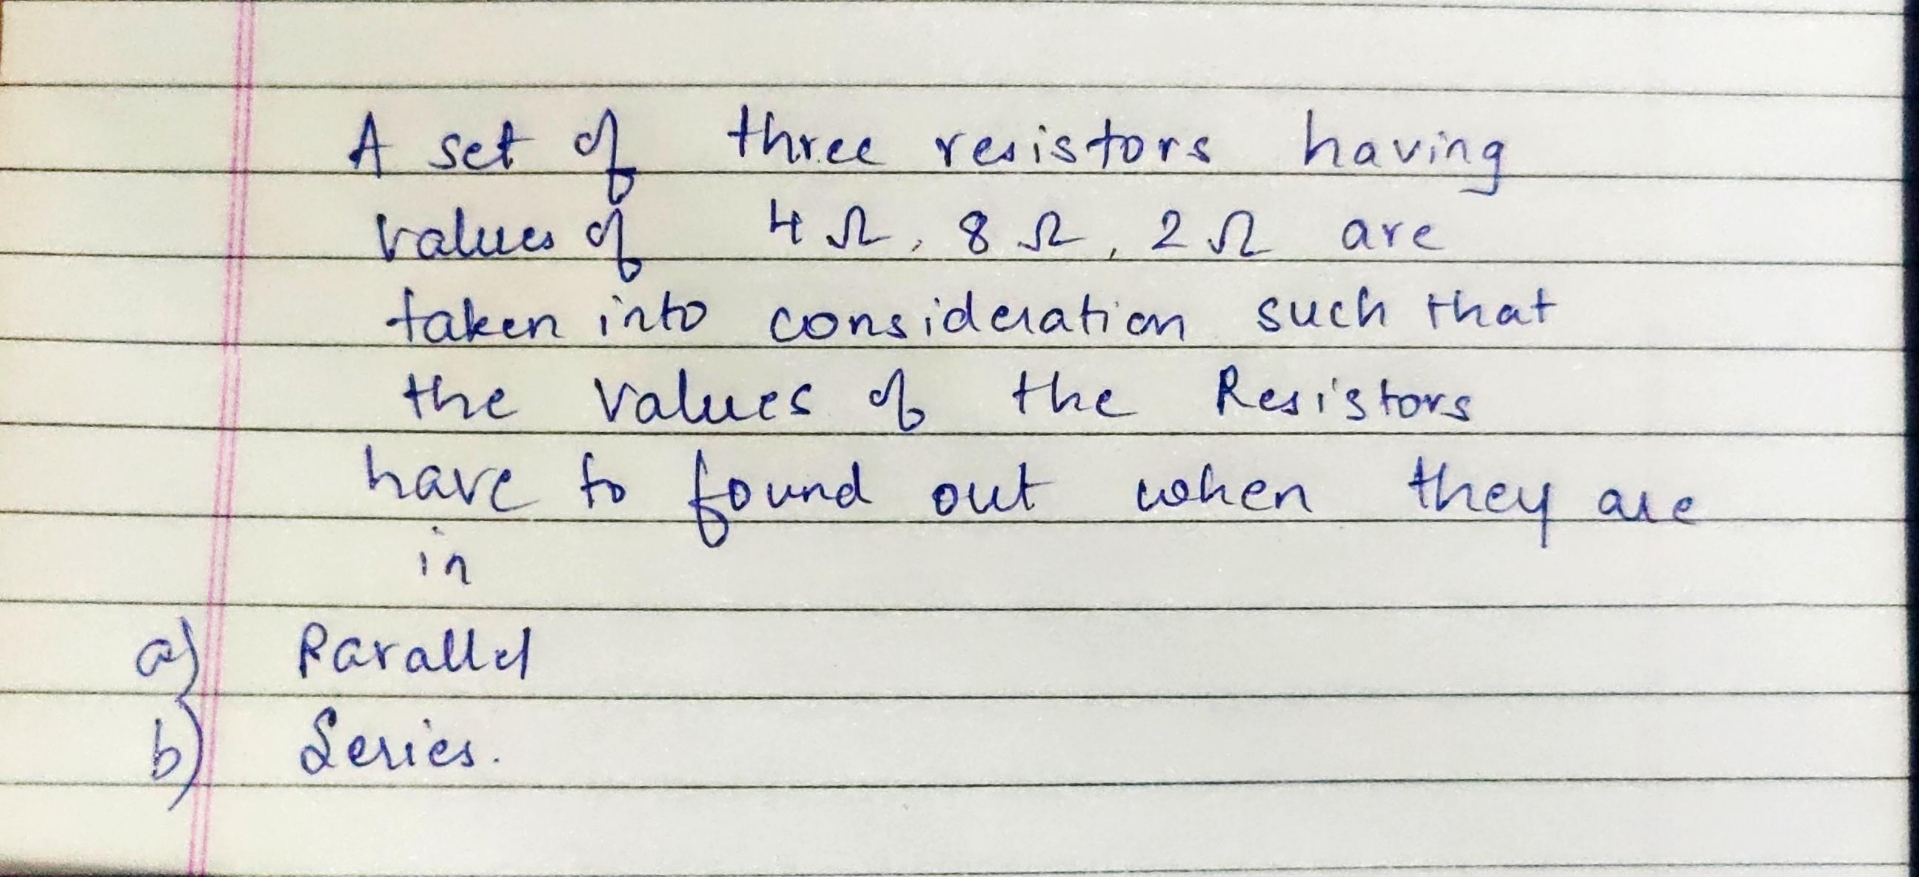 A set of three resistors having
values of 4Ω, 8Ω, 2Ω are
taken into consideration such that
the values of the Resistors
have to found out when they are
in
a) Parallel
b) Series.